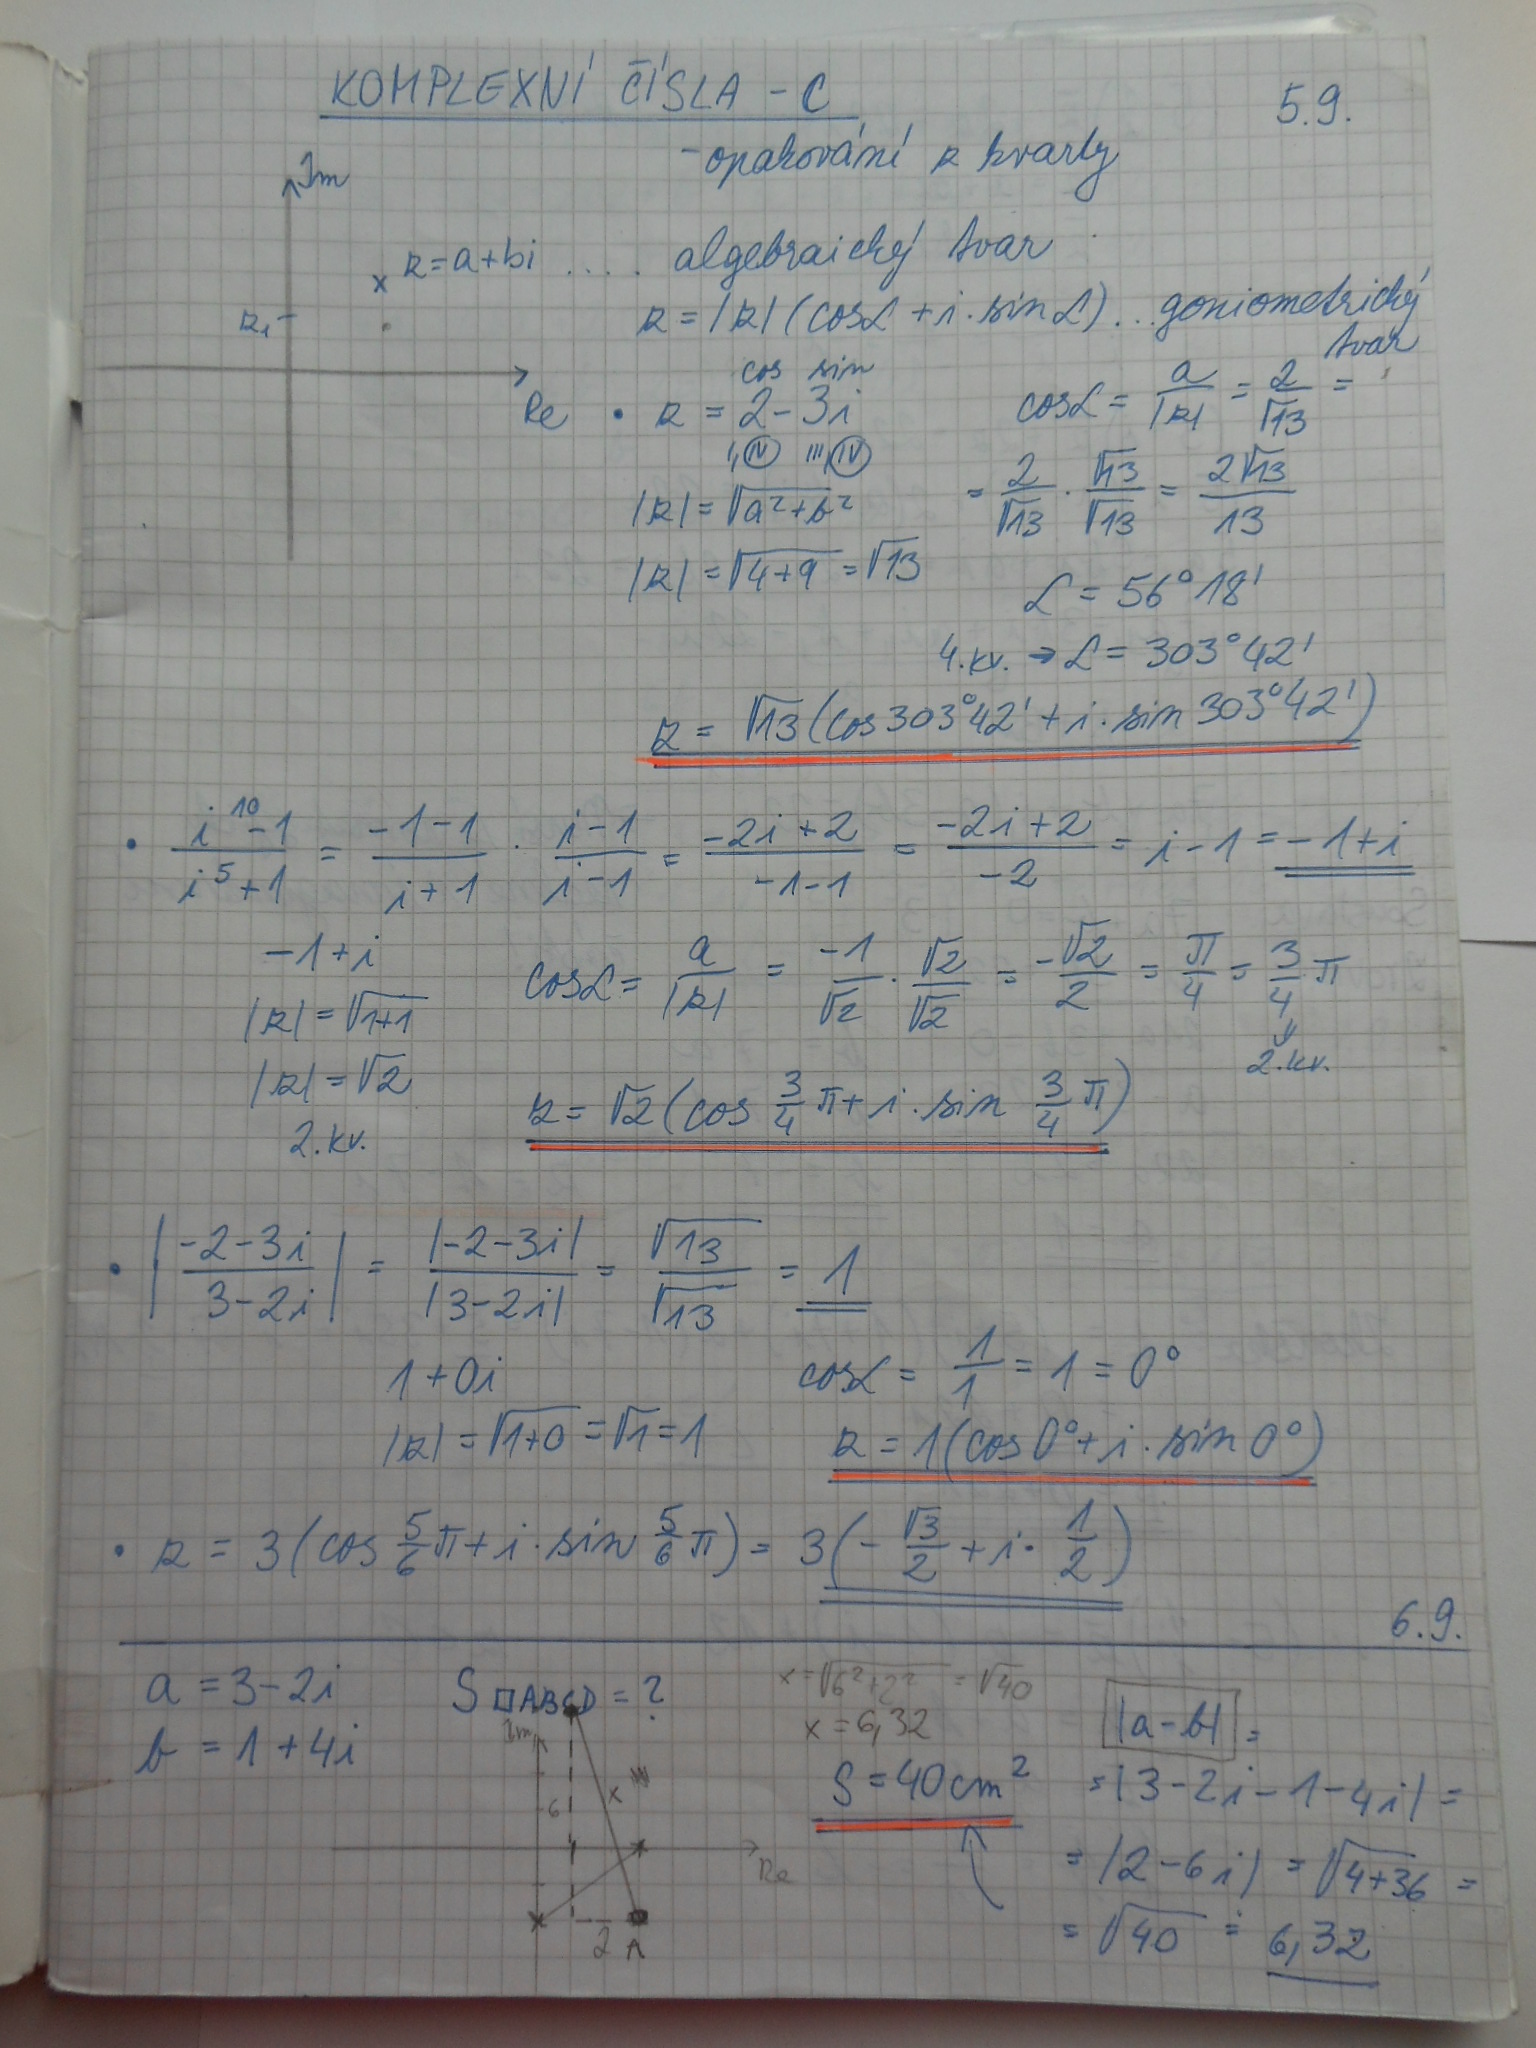 KOMPLEXNÍ ČÍSLA - C
5.9.
- opakování z kvarty
Im
z = a+bi .... algebraický tvar
z₁
z = |z| (cosα + i · sinα) ... goniometrický tvar
Re
cos sin
• z = 2 - 3i
I, IV III, IV
cosα = a/|z| = 2/√13 =
|z| = √(a²+b²)
= 2/√13 · √13/√13 = 2√13/13
|z| = √(4+9) = √13
α = 56°18'
4. kv. → α = 303°42'
z = √13 (cos 303°42' + i · sin 303°42')
• (i¹⁰-1)/(i⁵+1) = (-1-1)/(i+1) · (i-1)/(i-1) = (-2i+2)/(-1-1) = (-2i+2)/(-2) = i-1 = -1+i
-1+i
cosα = a/|z| = -1/√2 · √2/√2 = -√2/2 = π/4 = 3/4 π
|z| = √(1+1)
2. kv.
|z| = √2
z = √2 (cos 3/4 π + i · sin 3/4 π)
2. kv.
• |(-2-3i)/(3-2i)| = |-2-3i|/|3-2i| = √13/√13 = 1
1+0i
cosα = 1/1 = 1 = 0°
|z| = √(1+0) = √1 = 1
z = 1 (cos 0° + i · sin 0°)
• z = 3 (cos 5/6 π + i · sin 5/6 π) = 3 (- √3/2 + i · 1/2)
6.9.
a = 3-2i
S □ABCD = ?
x = √(6²+2²) = √40
|a-b| =
b = 1+4i
Im
x = 6,32
6
x
S = 40 cm²
= |3-2i-1-4i| =
Re
= |2-6i| = √(4+36) =
2 A
= √40 ≐ 6,32